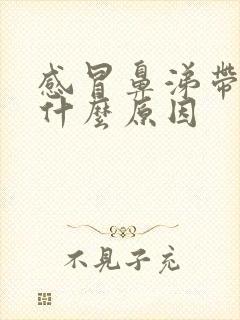 感冒鼻涕帶
什麼原因
不見子充